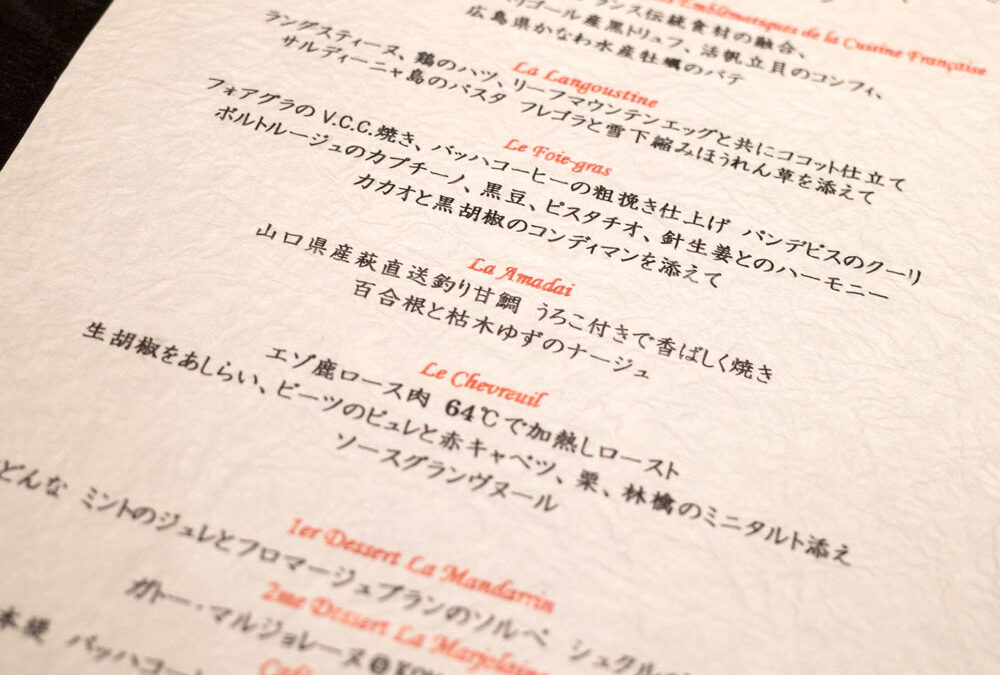 Emblématiques de la Cuisine Française
フランス伝統食材の融合、
ペリゴール産黒トリュフ、活帆立貝のコンフィ、
広島県かなわ水産牡蠣のパテ
La Langoustine
ラングスティーヌ、鶏のハツ、リーフマウンテンエッグと共にココット仕立て
サルディーニャ島のパスタ フレゴラと雪下縮みほうれん草を添えて
Le Foie-gras
フォアグラの V.C.C.焼き、バッハコーヒーの粗挽き仕上げ パンデピスのクーリ
ポルトルージュのカプチーノ、黒豆、ピスタチオ、針生姜とのハーモニー
カカオと黒胡椒のコンディマンを添えて
La Amadai
山口県産萩直送釣り甘鯛 うろこ付きで香ばしく焼き
百合根と枯木ゆずのナージュ
Le Chevreuil
エゾ鹿ロース肉 64℃で加熱しロースト
生胡椒をあしらい、ビーツのピュレと赤キャベツ、栗、林檎のミニタルト添え
ソースグランヴヌール
1er Dessert La Mandarrin
どんな ミントのジュレとフロマージュブランのソルベ シュクル
2me Dessert La Marjolaine
ガトー・マルジョレーヌ
Café
バッハコー